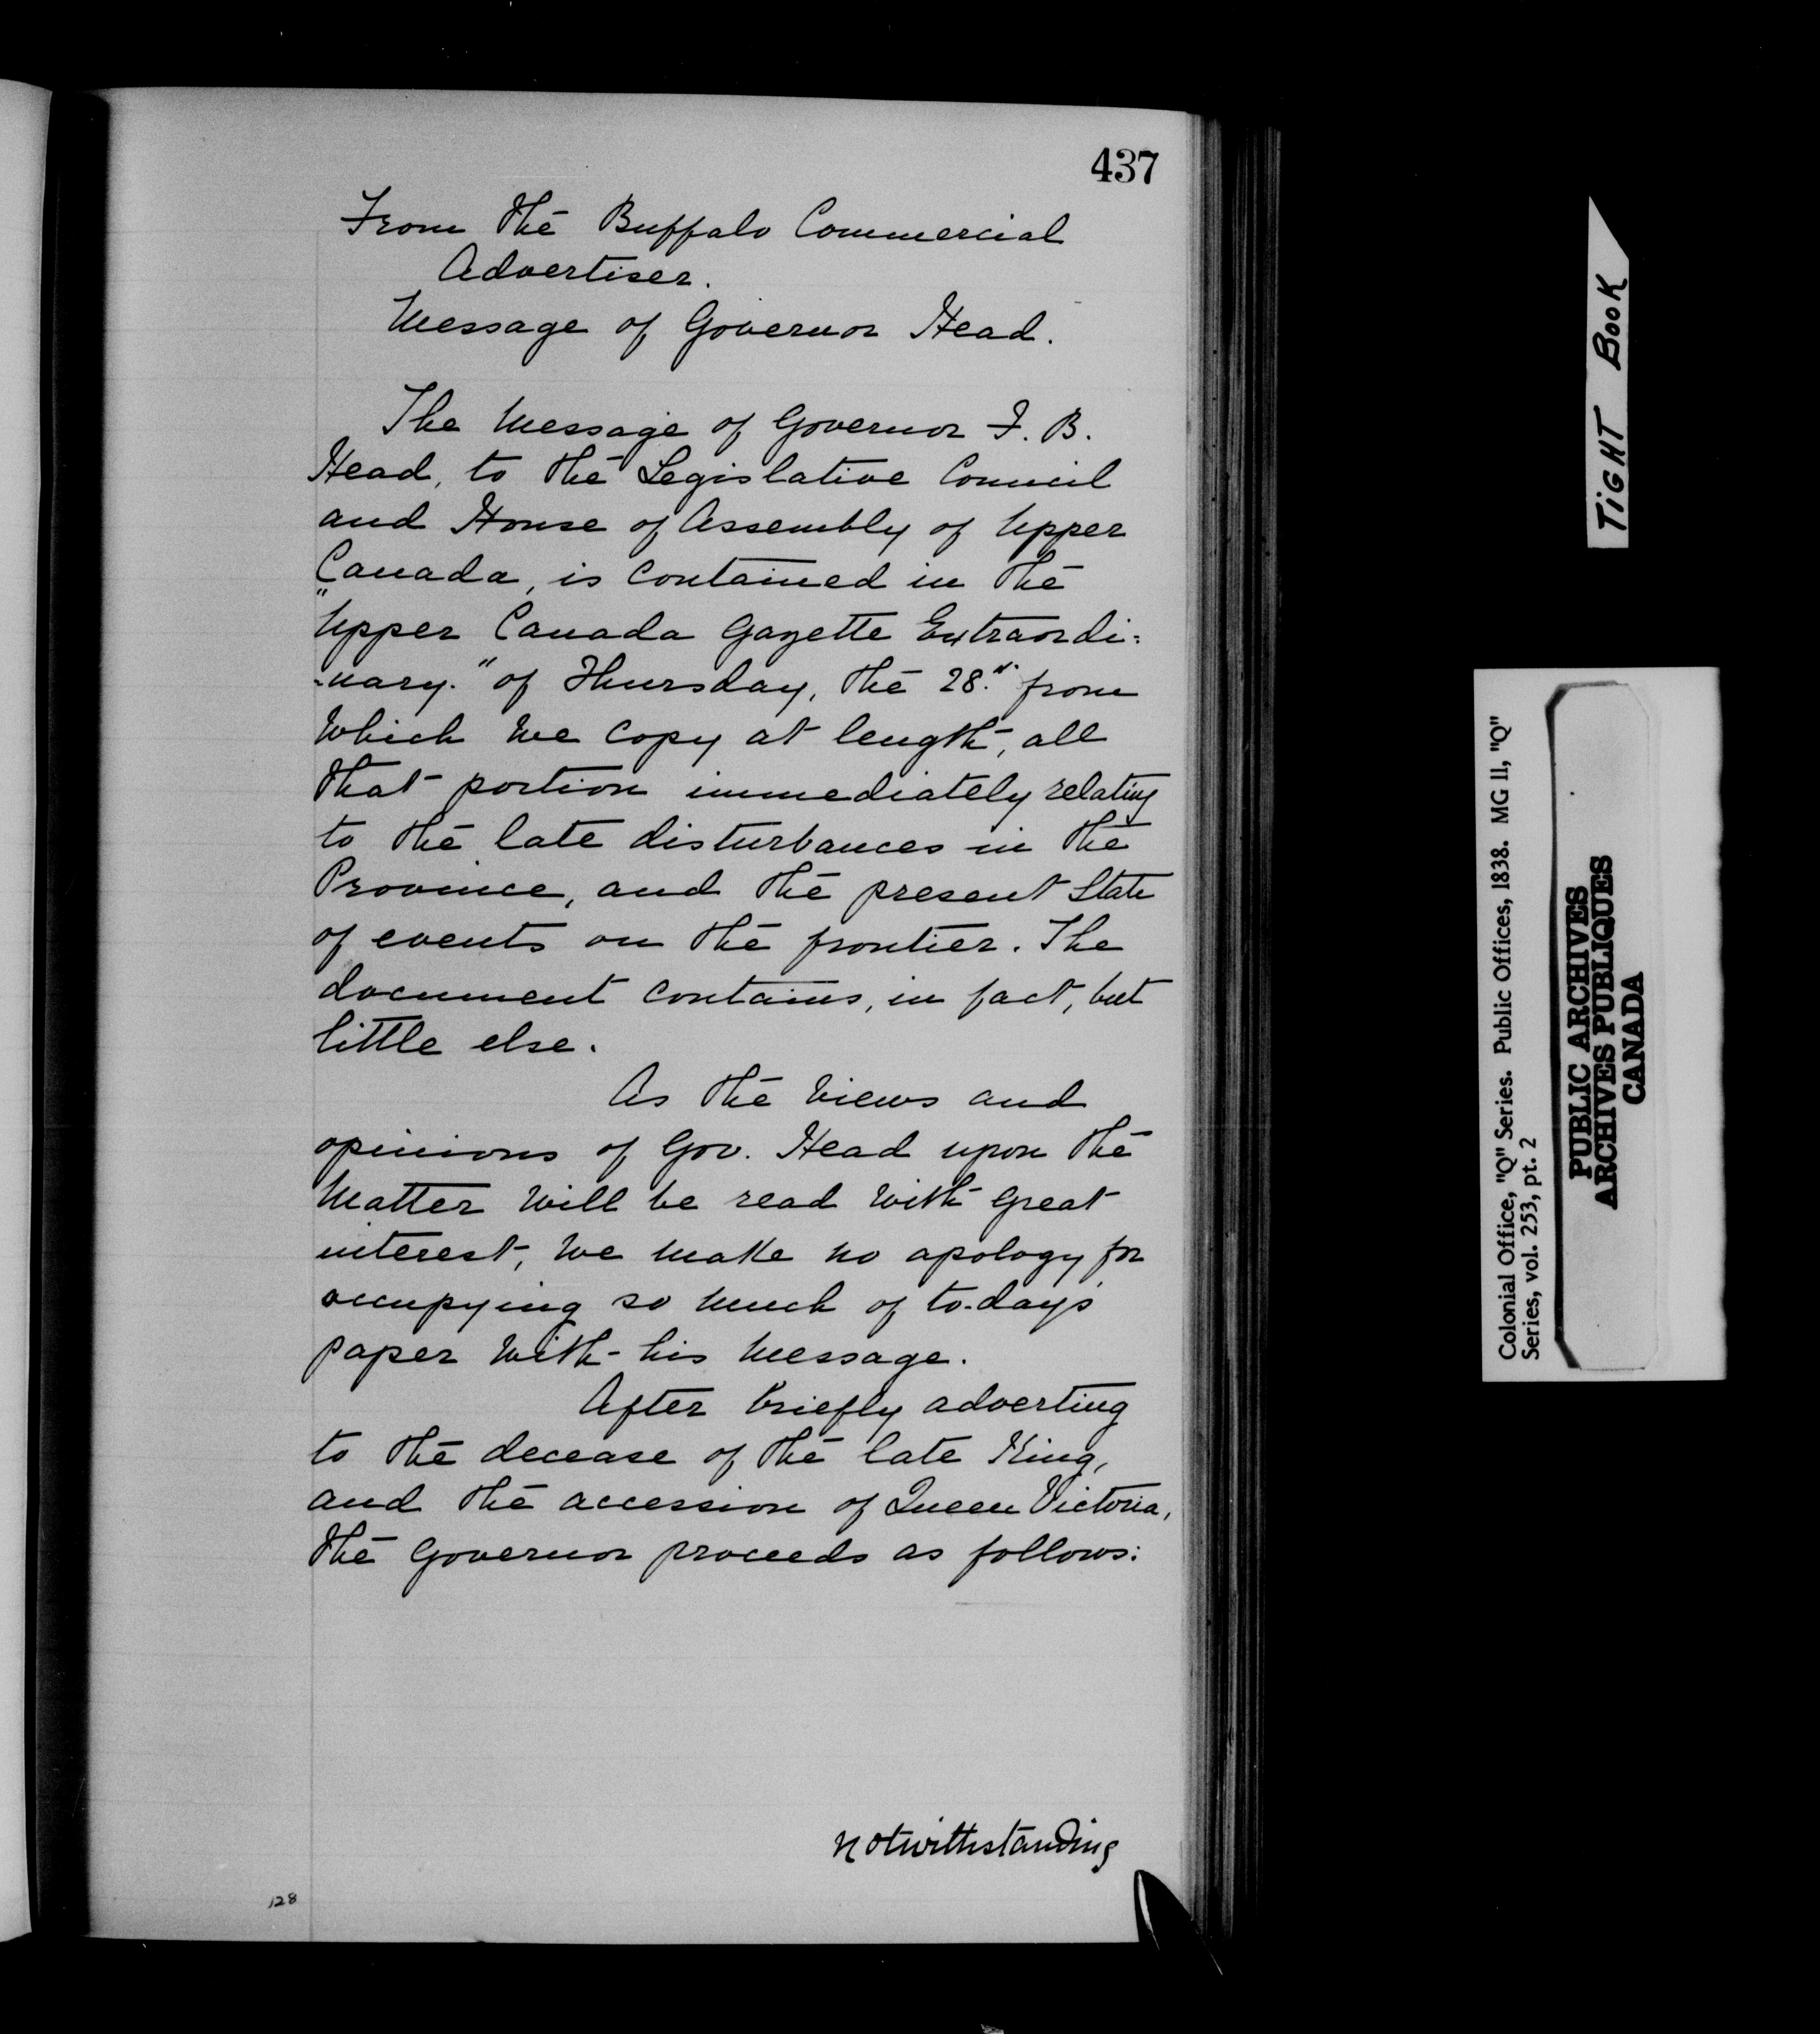 437
From the Buffalo Commercial
Advertiser.
Message of Governor Head.
The Message of Governor F. B.
Head, to the Legislative Council
and House of Assembly of Upper
Canada, is contained in the
"Upper Canada Gazette Extraordi=
=nary." of Thursday, the 28.th from
which we copy at length, all
that portion immediately relating
to the late disturbances in the
Province, and the present State
of events on the frontier. The
document contains, in fact, but
little else.
As the views and
opinions of Gov. Head upon the
matter will be read with great
interest, we make no apology for
occupying so much of to-day's
paper with his message.
After briefly adverting
to the decease of the late King,
and the accession of Queen Victoria,
the Governor proceeds as follows:
notwithstanding
128
TIGHT BOOK
Colonial Office, "Q" Series. Public Offices, 1838. MG 11, "Q"
Series, vol. 253, pt. 2
PUBLIC ARCHIVES
ARCHIVES PUBLIQUES
CANADA